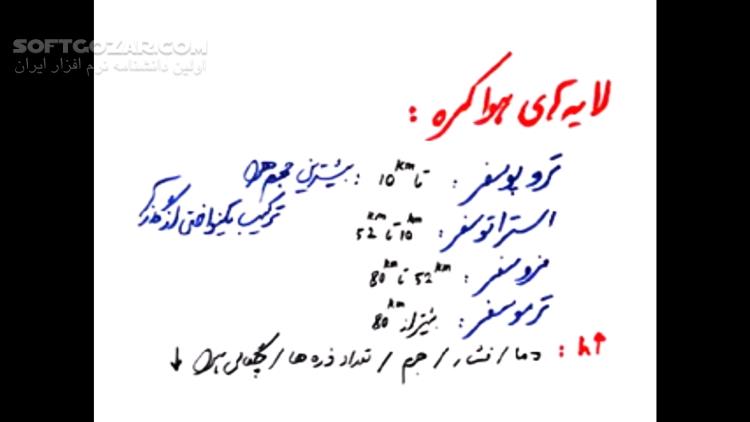 SOFTGOZAR.COM
اولین دانشنامه نرم افزار ایران
لایه های هوا کره :
تروپوسفر : تا 10 km : بیشترین حجم هوا
ترکیب یکنواختی از گازها
استراتوسفر : 10 km تا 52 km
مزوسفر : 52 km تا 80 km
ترموسفر : بیشتر از 80 km
h↑ : دما / فشار / جرم / تعداد ذره ها / چگالی هوا ↓